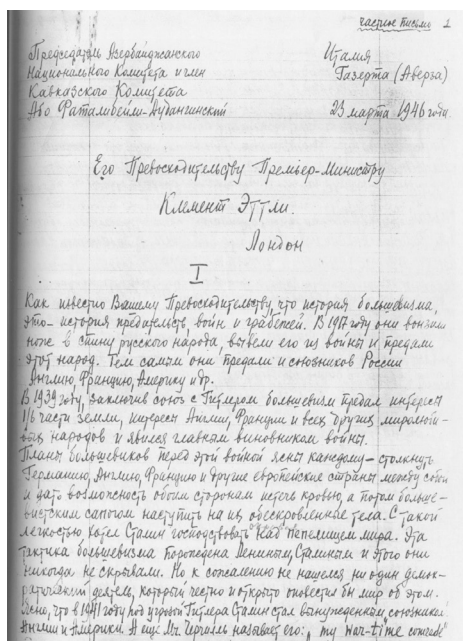 частное письмо 1
Председатель Азербайджанского
Национального Комитета и член
Кавказского Комитета
Або Фаталибейли-Дудангинский
Италия
Газерта (Аверза)
23 марта 1946 года.
Его Превосходительству Премьер-Министру
Клемент Эттли.
Лондон
I
Как известно Вашему Превосходительству, что история большевизма,
это – история предательств, войн и грабежей. В 1917 году они вонзили
нож в спину русского народа, вывели его из войны и предали
этот народ. Тем самым они предали и союзников России
Англию, Францию, Америку и др.
В 1939 году, заключив союз с Гитлером большевизм предал интересы
1/6 части земли, интересы Англии, Франции и всех других миролюби-
вых народов и явился главным виновником войны.
Планы большевиков перед этой войной ясны каждому – столкнуть
Германию, Англию, Францию и другие европейские страны между собой
и дать возможность обоим сторонам истечь кровью, а потом больше-
вистским сапогом наступить на их обескровленные тела. С такой
легкостью хотел Сталин господствовать над пепелищем мира. Эта
тактика большевизма Лениным, Сталиным и этого они
никогда не скрывали. Но к сожалению не нашелся ни один демок-
ратический деятель, который честно и открыто оповестил бы мир об этом.
Ясно, что в 1941 году под угрозой Гитлера Сталин стал вынужденным союзником
Англии и Америки. А еще Мг. Черчиль называет его: „my war-time comrade"